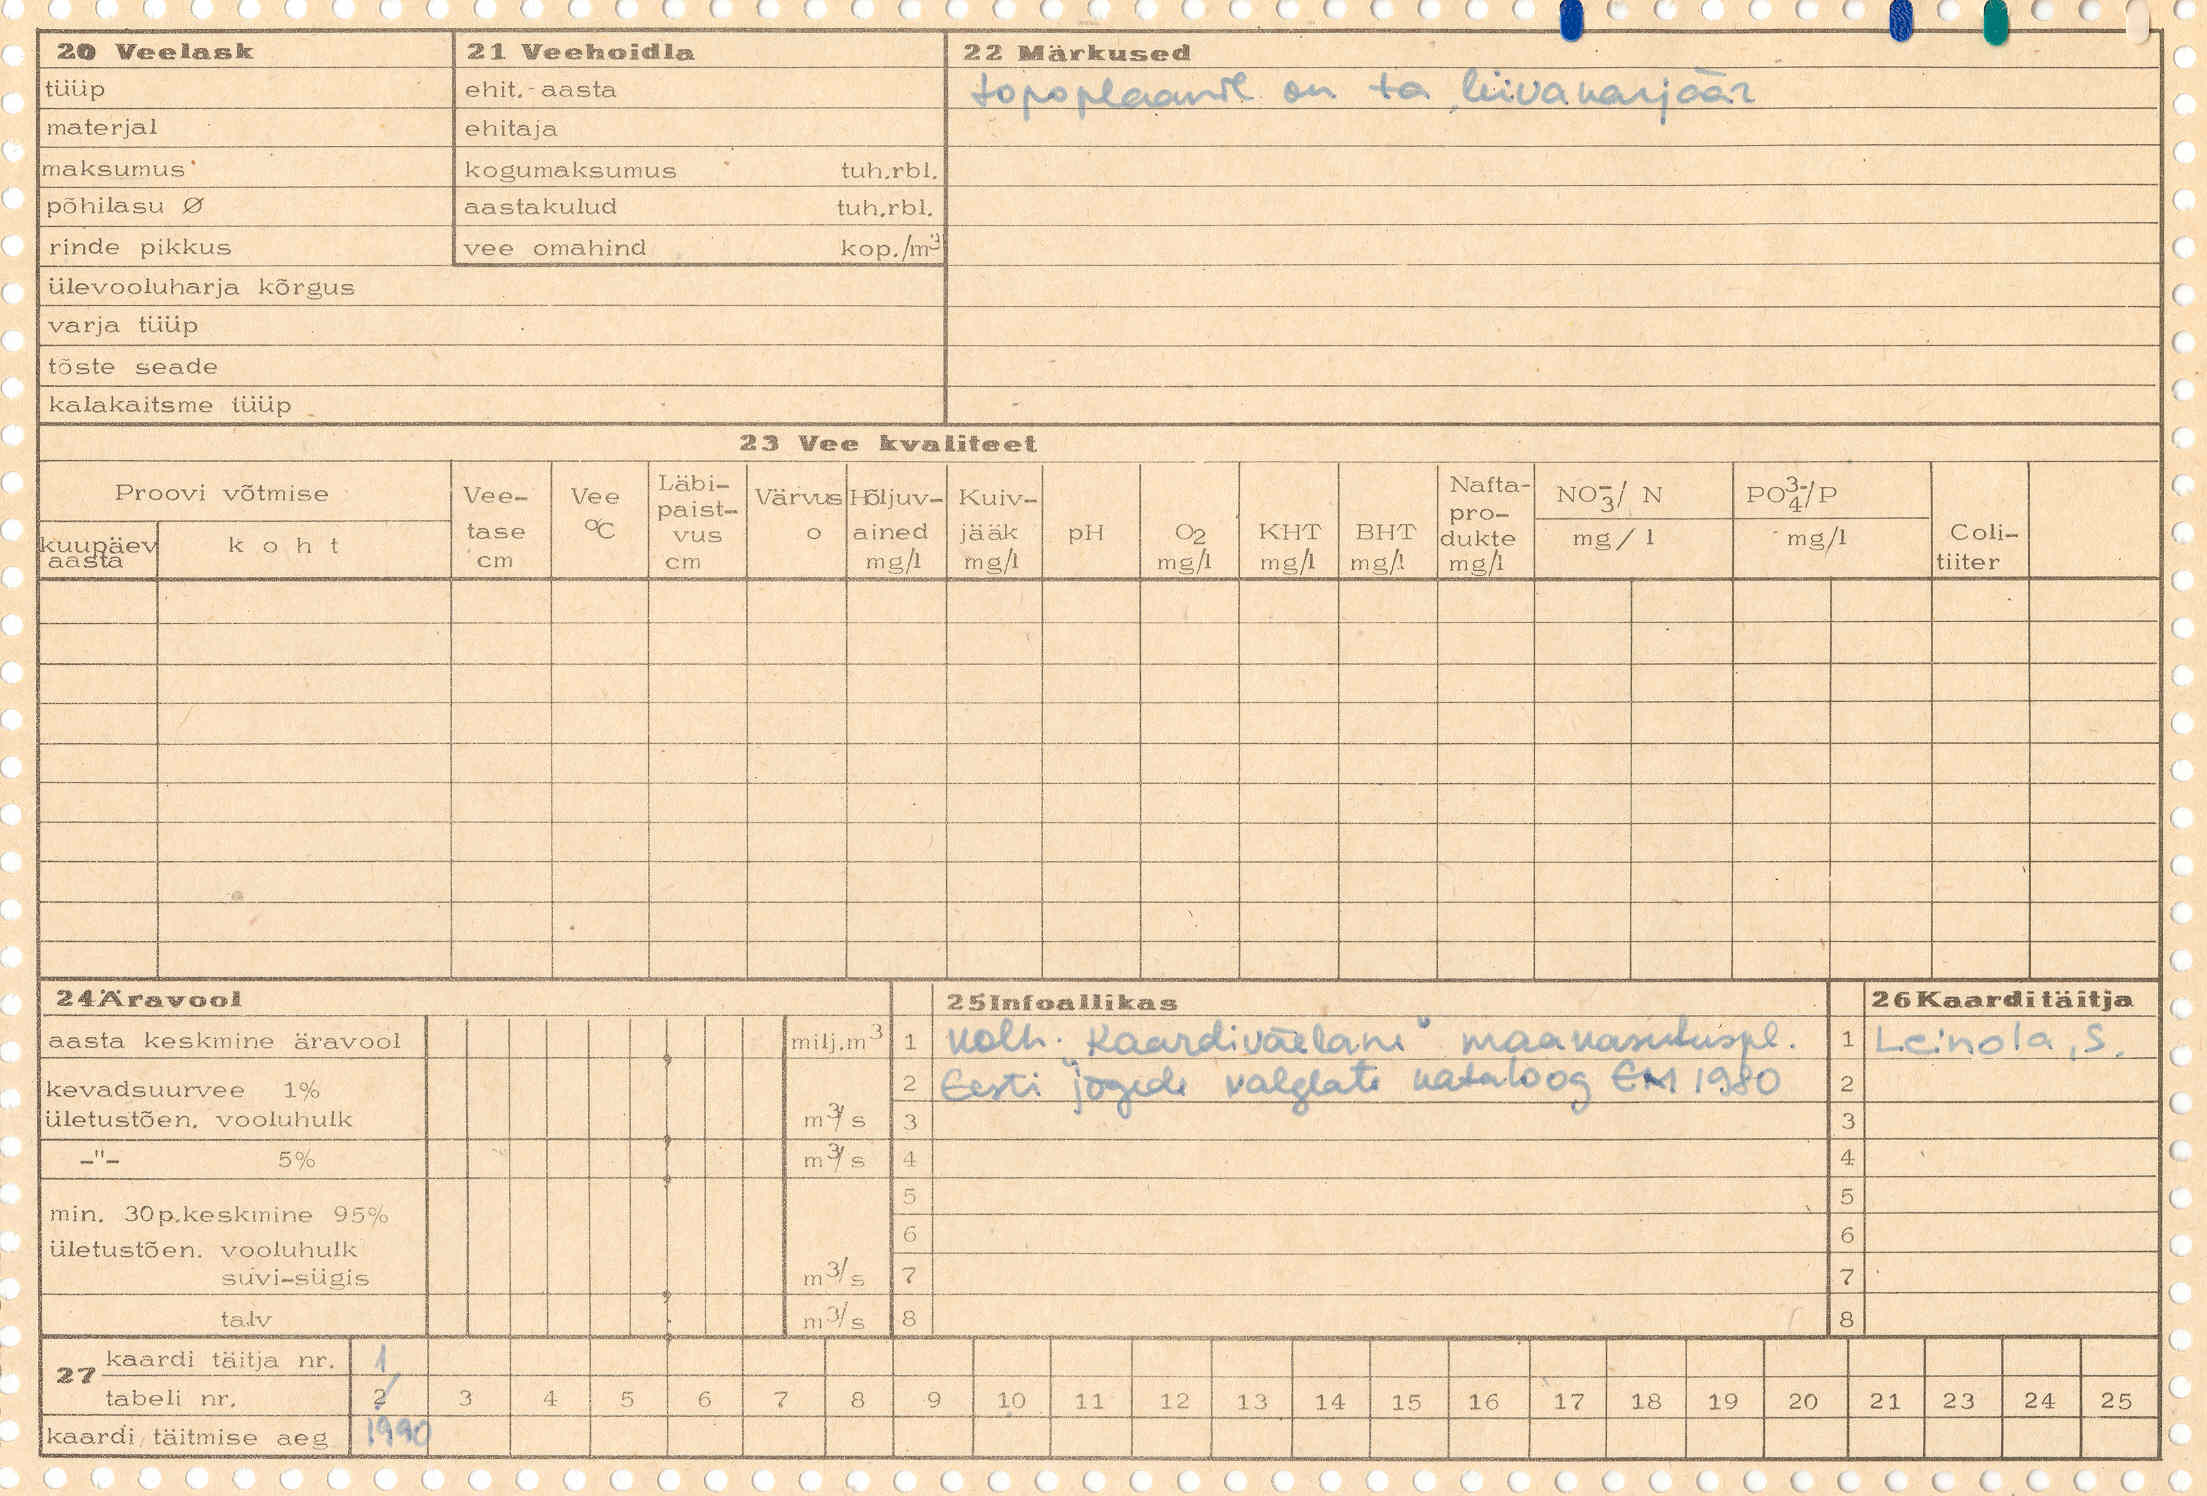 20 Veelask
tüüp
materjal
maksumus
põhilasu Ø
rinde pikkus
ülevooluharja kõrgus
varja tüüp
tõste seade
kalakaitsme tüüp
21 Veehoidla
ehit.-aasta
ehitaja
kogumaksumus tuh.rbl.
aastakulud tuh.rbl.
vee omahind kop./m³
22 Märkused
topoplaanil on ta liivakarjäär
23 Vee kvaliteet
Proovi võtmise
kuupäev
aasta
koht
Vee-
tase
cm
Vee
°C
Läbi-
paist-
vus
cm
Värvus
o
Hõljuv-
ained
mg/l
Kuiv-
jääk
mg/l
pH
O₂
mg/l
KHT
mg/l
BHT
mg/l
Nafta-
pro-
dukte
mg/l
NO₃⁻/ N
mg/l
PO₄³⁻/P
mg/l
Coli-
tiiter
24 Äravool
aasta keskmine äravool milj.m³
kevadsuurvee 1%
ületustõen. vooluhulk m³/s
-"- 5% m³/s
min. 30p.keskmine 95%
ületustõen. vooluhulk
suvi-sügis m³/s
talv m³/s
25 Infoallikas
1 kolh. "Kaardiväelane" maakasutuspl.
2 Eesti jõgede valglate kataloog EM 1980
3
4
5
6
7
8
26 Kaarditäitja
1 Leinola, S.
2
3
4
5
6
7
8
27
kaardi täitja nr. 1
tabeli nr. 2 3 4 5 6 7 8 9 10 11 12 13 14 15 16 17 18 19 20 21 23 24 25
kaardi täitmise aeg 1990